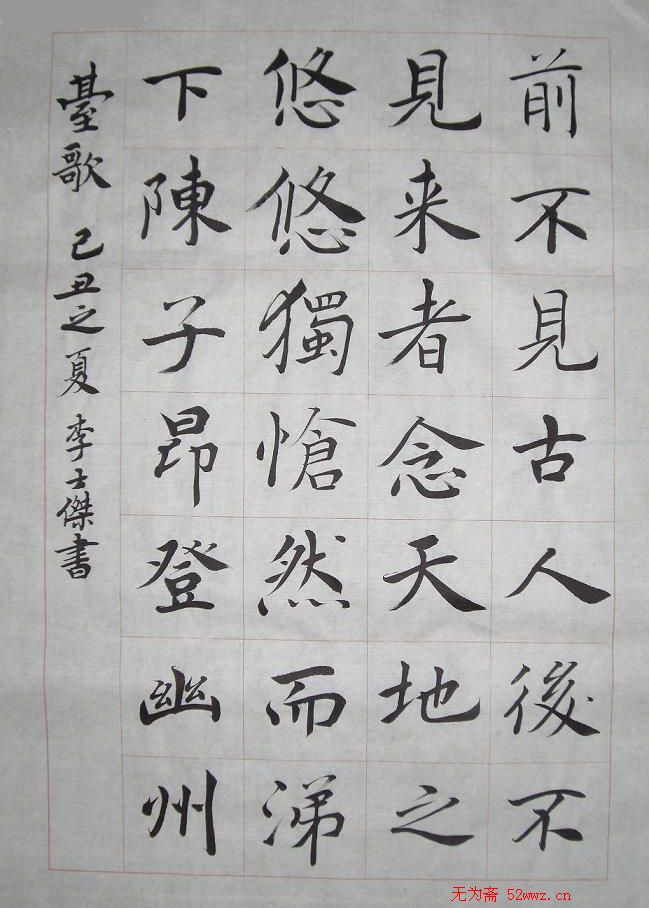 前不見古人後不
見来者念天地之
悠悠獨愴然而涕
下陳子昂登幽州
臺歌 己丑之夏 李士傑書
无为斋 52wwz.cn